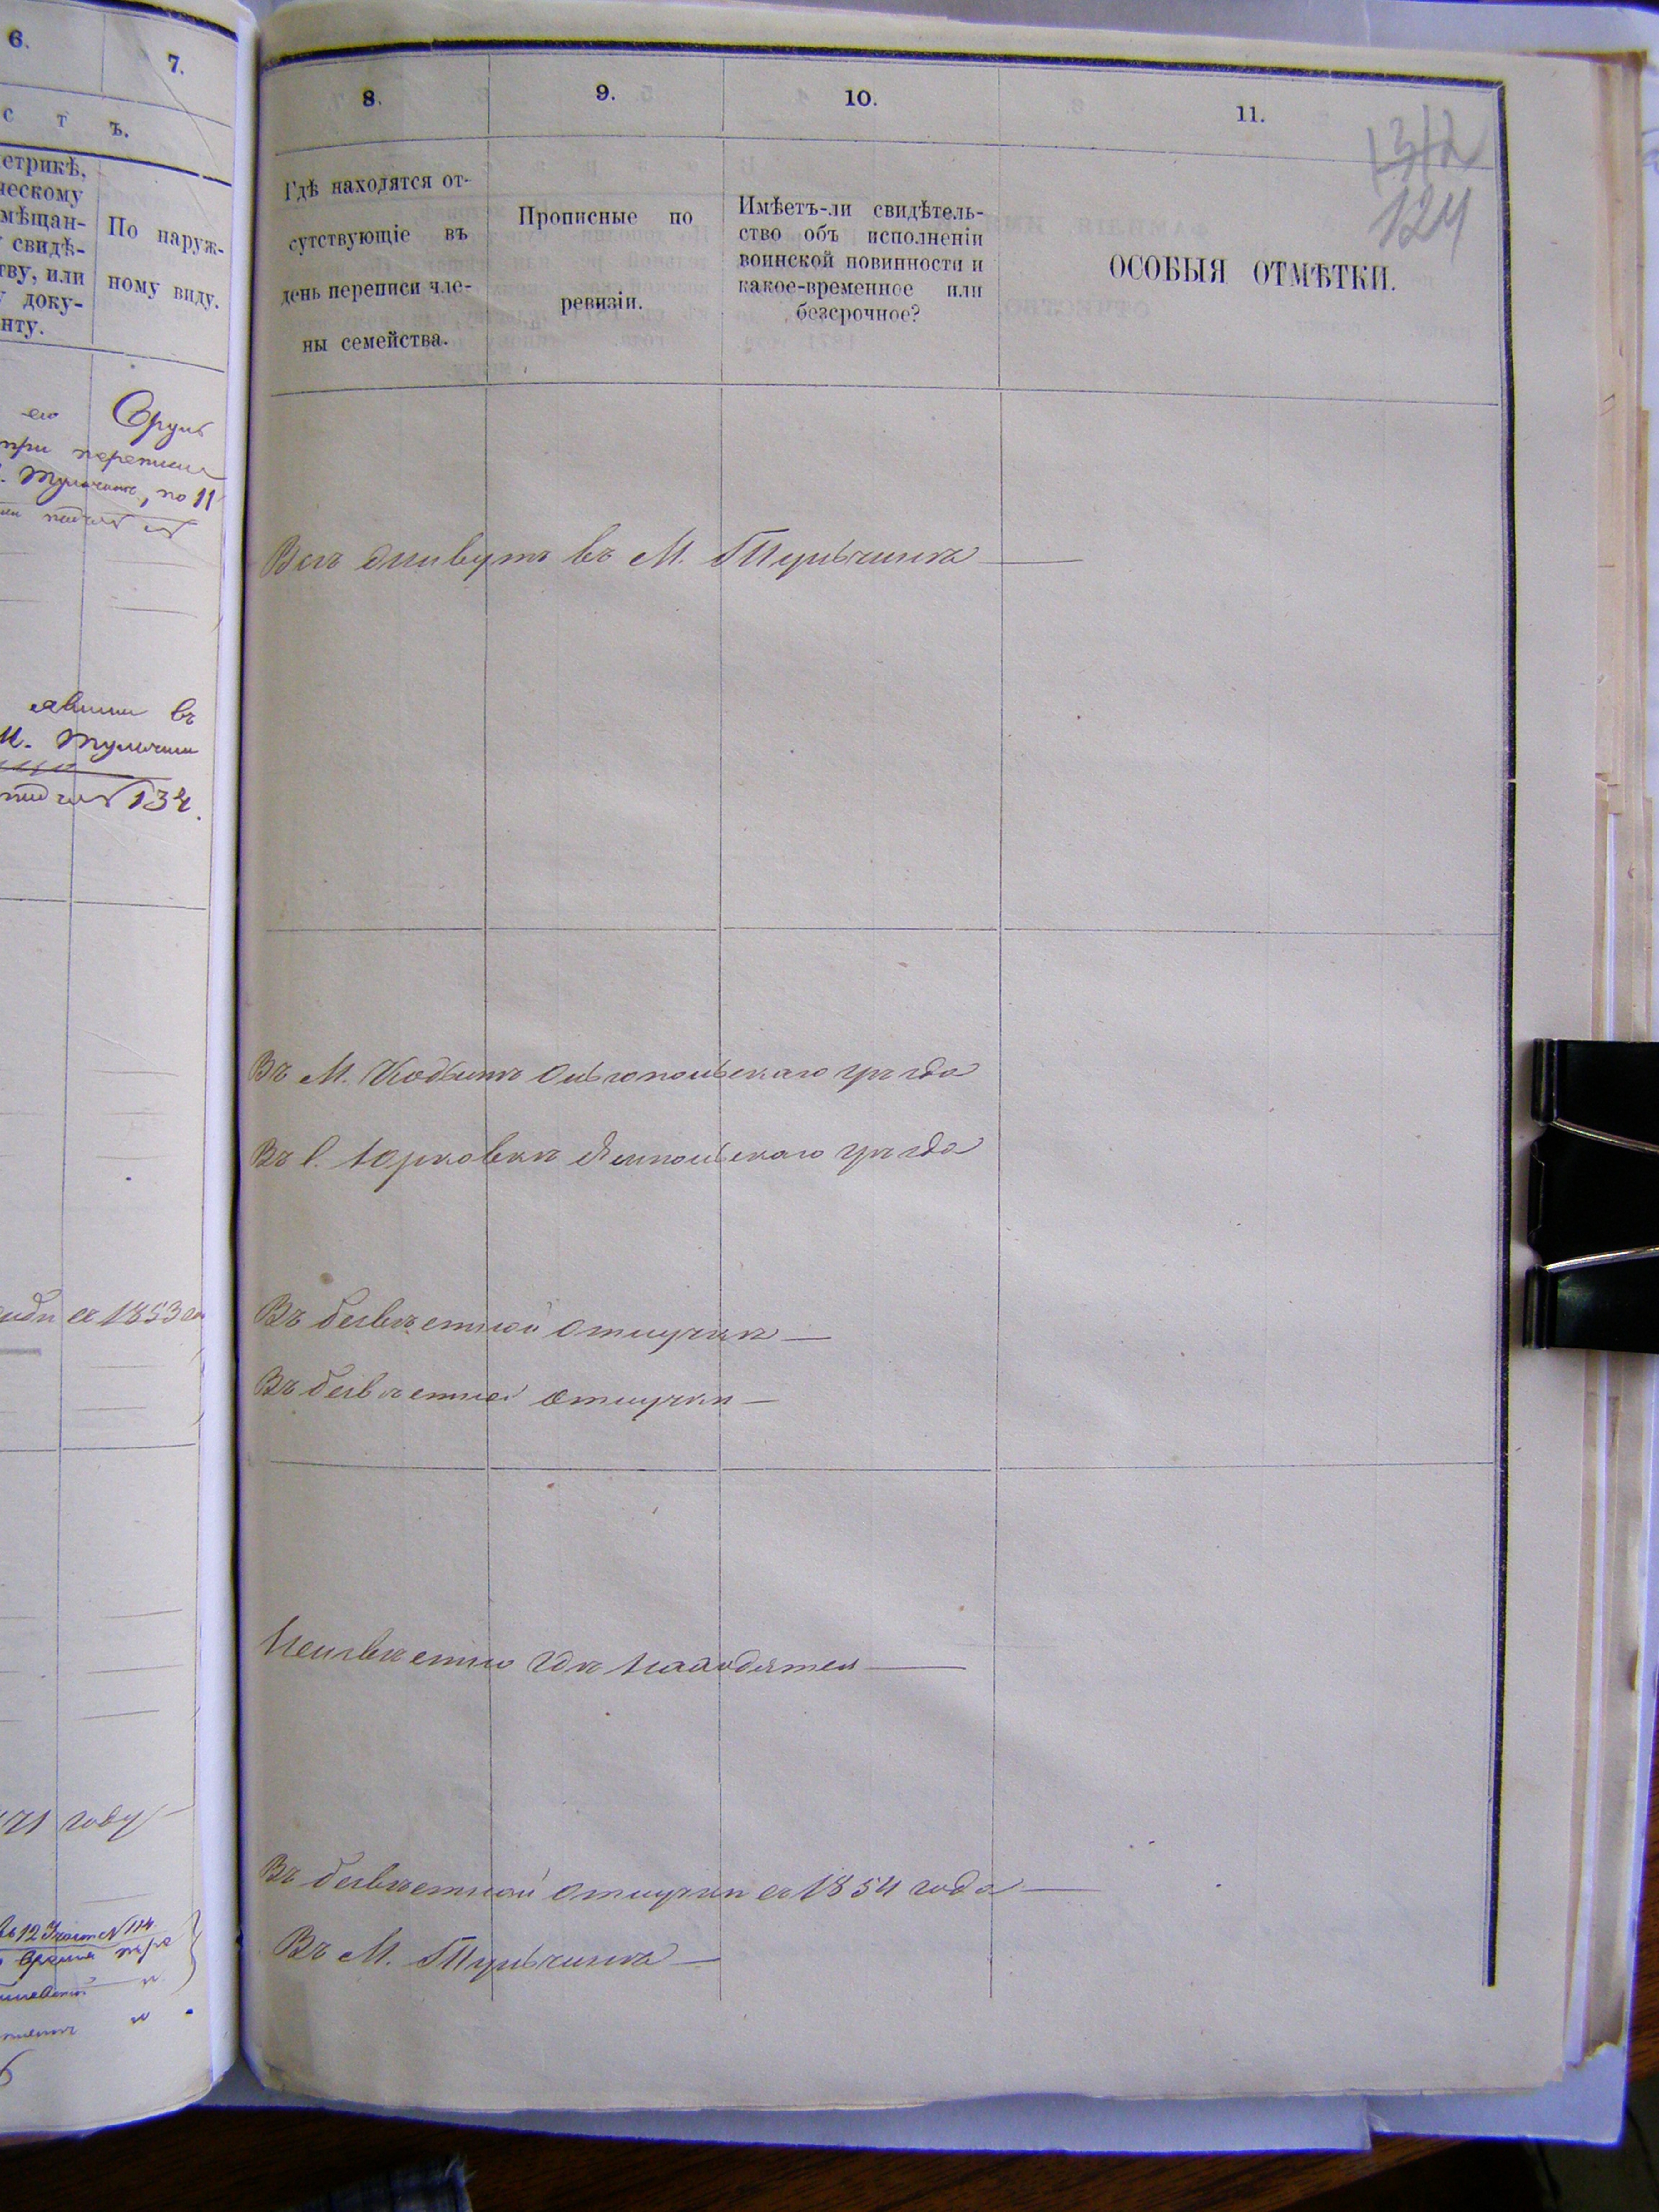 6.
7.
с т ъ.
етрикѣ,
ческому
мѣщан-
свидѣ-
тву, или
у доку-
нту.
По наруж-
ному виду.
его
при переписи
по 11
явлены въ
М. Тульчин
134.
съ 1853 го
71 году
8.
9.
10.
11.
132
124
Гдѣ находятся от-
сутствующіе въ
день переписи чле-
ны семейства.
Прописные по
ревизіи.
Имѣетъ-ли свидѣтель-
ство объ исполненіи
воинской повинности и
какое-временное или
безсрочное?
ОСОБЫЯ ОТМѢТКИ.
Всѣ живутъ въ М. Тульчинѣ
Въ М. Кодымѣ Ольгопольскаго уѣзда
Въ С. Юрковкѣ Ямпольскаго уѣзда
Въ безвѣстной отлучкѣ
Въ безвѣстной отлучкѣ
Неизвѣстно гдѣ находятся
Въ безвѣстной отлучкѣ съ 1854 года
Въ М. Тульчинѣ